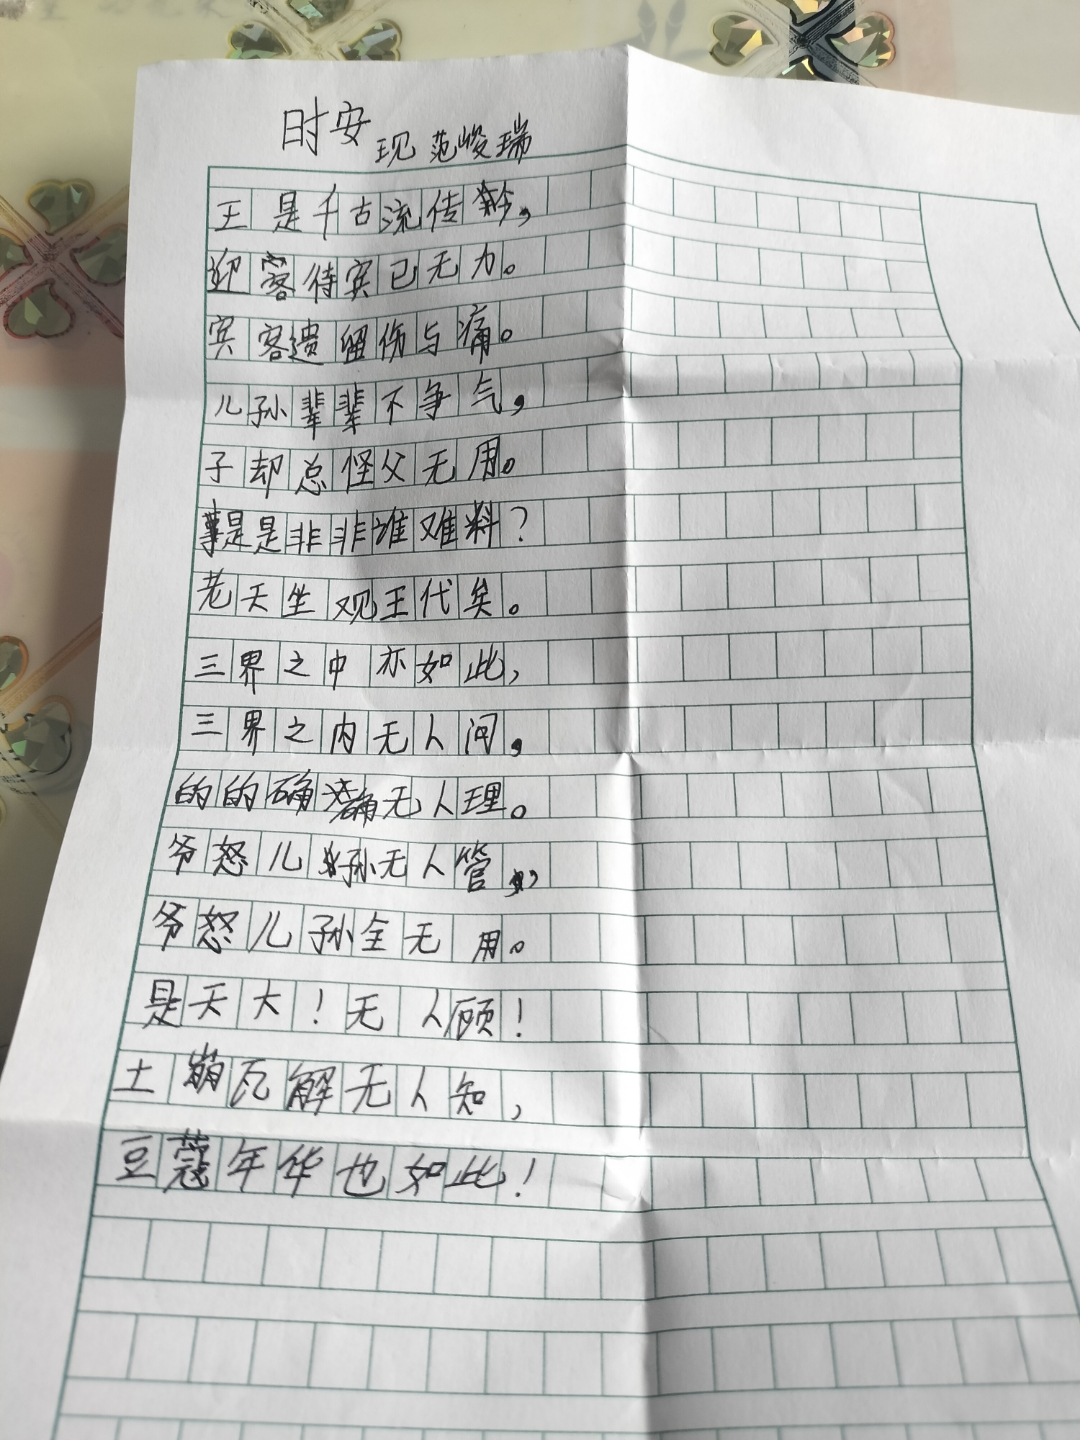 时安
现 范峻瑞
王是千古流传矜,
迎客待宾已无力。
宾客遗留伤与痛。
儿孙辈辈不争气,
子却总怪父无用。
是是非非谁难料?
老天坐观王代矣。
三界之中亦如此,
三界之内无人问,
的的确确无人理。
爷怒儿孙无人管,
爷怒儿孙全无用。
是天大!无人顾!
土崩瓦解无人知,
豆蔻年华也如此!